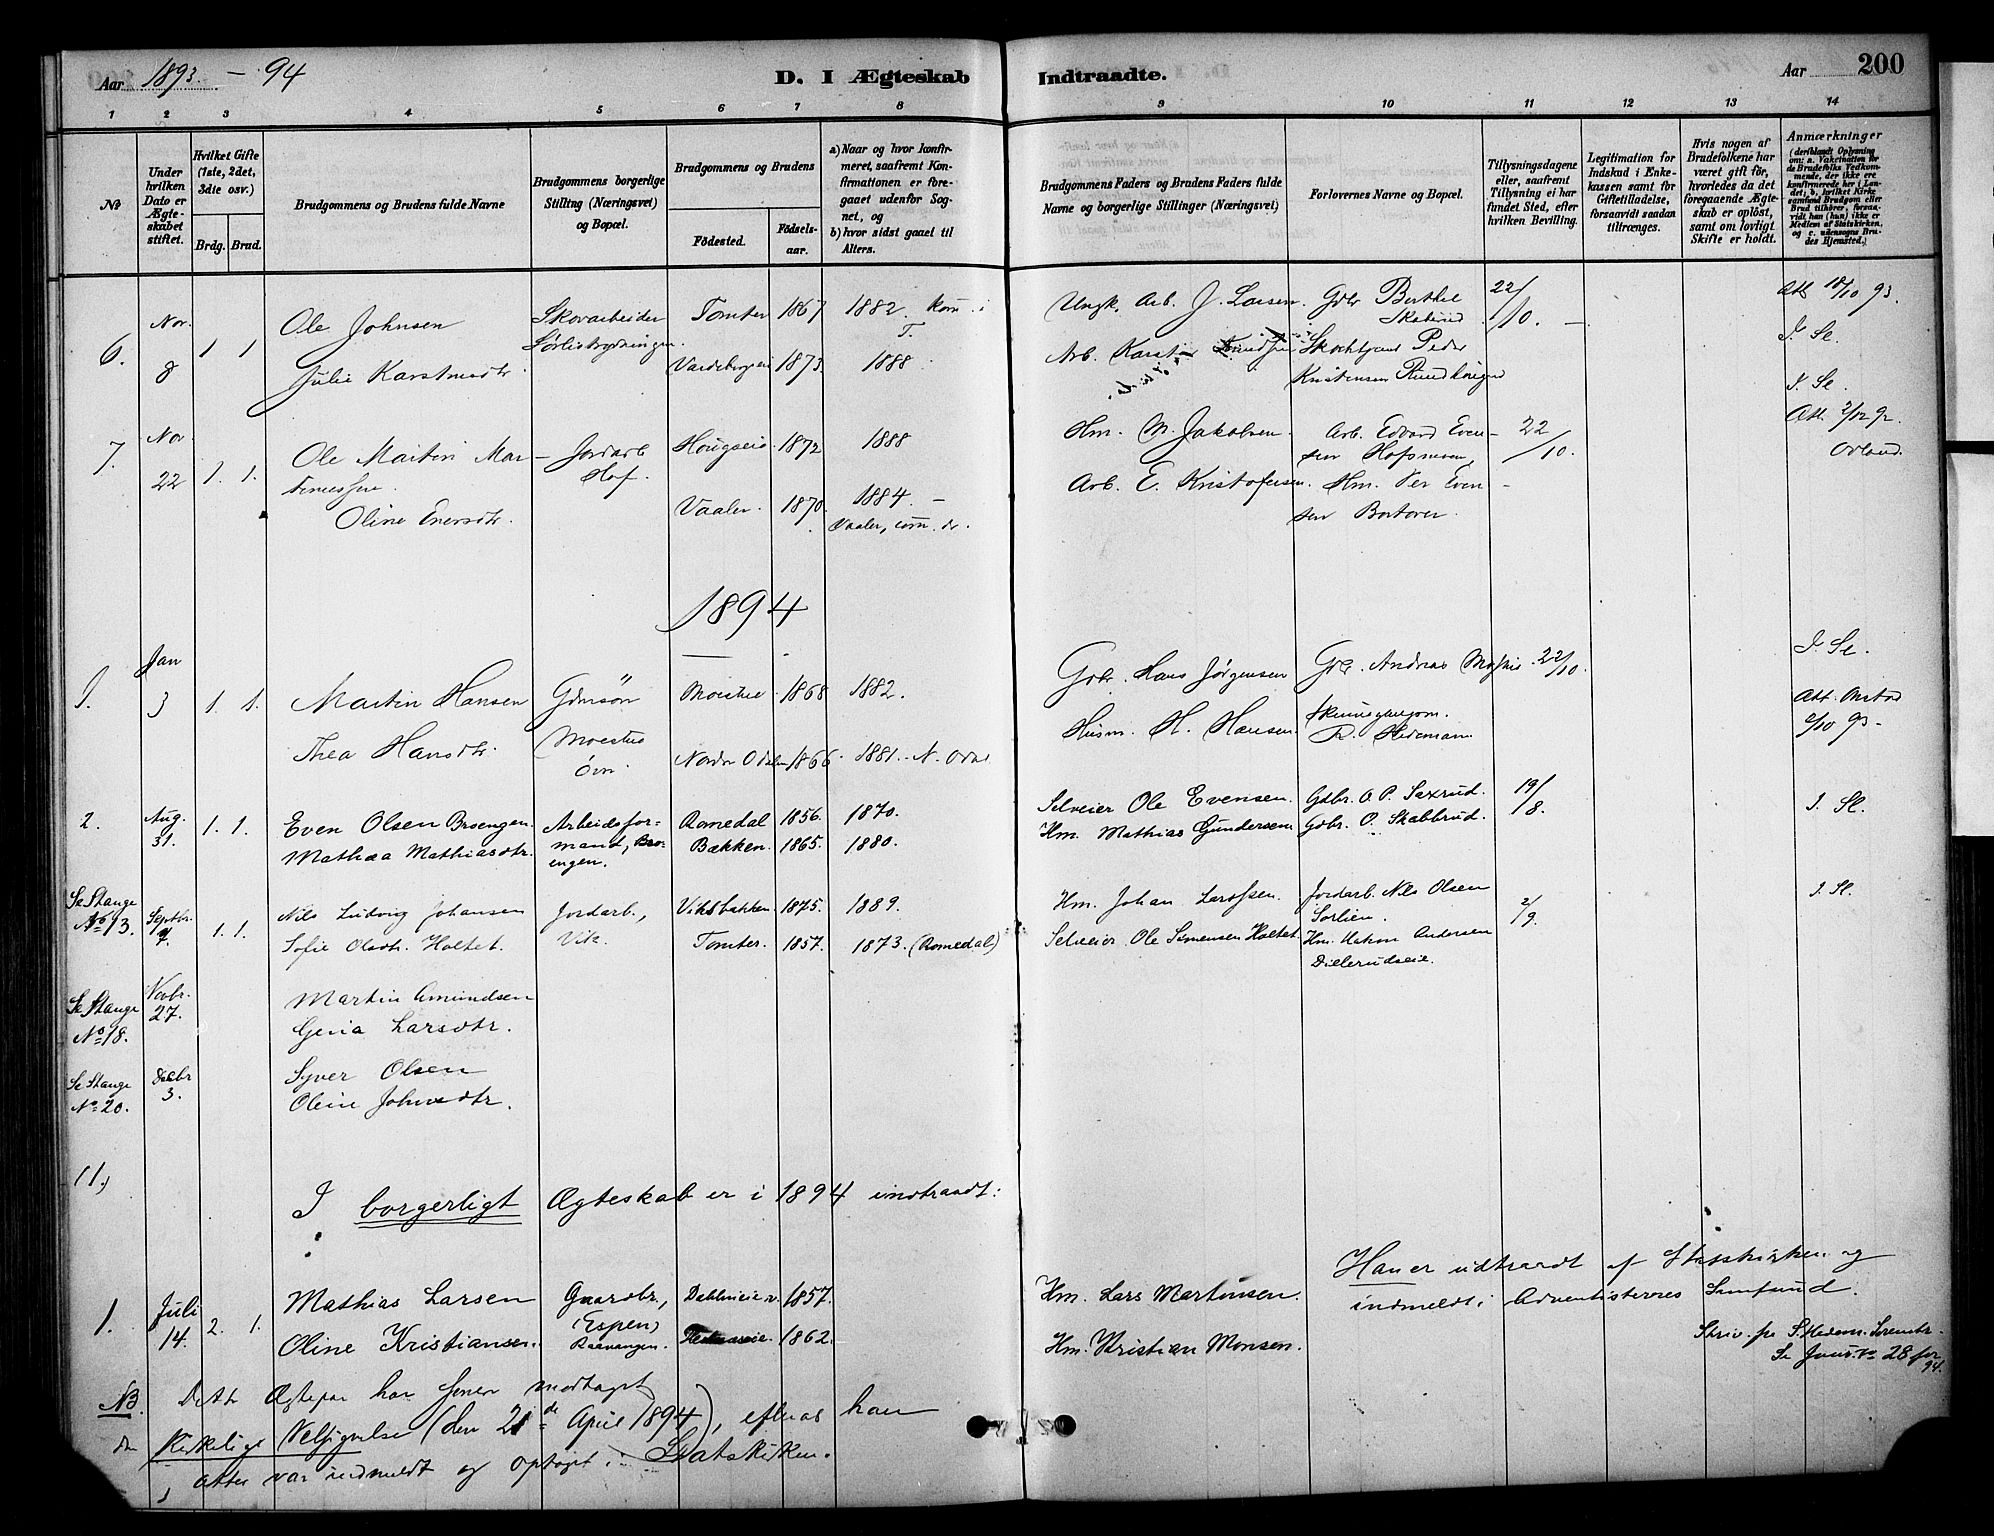 Aar 1893. – 94
D. I Ægteskab Indtraadte.
Aar 200
1 2 3 4 5 6 7 8 9 10 11 12 13 14
No
Under hvilken Dato er Ægteskabet stiftet.
Hvilket Gifte (1ste, 2det, 3die osv.)
Brdg. Brud.
Brudgommens og Brudens fulde Navne
Brudgommens borgerlige Stilling (Næringsvei) og Bopæl.
Brudgommens og Brudens
Fødested.
Fødselsaar.
a) Naar og hvor konfirmeret, saafremt Konfirmationen er foregaaet udenfor Sognet, og
b) hvor sidst gaaet til Alters.
Brudgommens Faders og Brudens Faders fulde Navne og borgerlige Stillinger (Næringsvei)
Forlovernes Navne og Bopæl.
Tillysningsdagene eller, saafremt Tillysning ei har fundet Sted, efter hvilken Bevilling.
Legitimation for Indskud i Enkekassen samt for Giftetilladelse, forsaavidt saadan tiltrænges.
Hvis nogen af Brudefolkene har været gift før, hvorledes da det foregaaende Ægteskab er opløst, samt om lovligt Skifte er holdt.
Anmærkninger (deriblandt Oplysning om: a. Vakcination for de Brudefolks Vedkommende, der ikke ere konfirmerede her i Landet; b. hvilket Kirkesamfund Brudgom eller Brud tilhører, forsaavidt han (hun) ikke er Medlem af Statskirken, og c. udensogns Brudes Hjemsted.)
6. Nov. 8 1 1 Ole Johnsen Skovarbeider Tomter 1867 1882. Kom. i T. Ungk. Arb. J. Larsen. Gdbr Berthel 22/10. – Att 18/10 93.
Julie Karstensdtr. 1873. 1888. Arb. Peder
Kristensen
J. Sl.
J. Sl.
7. Nov 22 1. 1. Ole Martin Martinussen Jordarb Hof. 1872 1888 Hm. M. Jakobsen. Arb. Edvard Evensen 22/10. Att. 2/12 92
Oline Enersdtr. Vaaler. 1870. 1884 – Vaaler, Arb. E. Kristofersen. Hm. Per Evensen
1894
1. Jan 3 1. 1. Martin Hansen Gdmsøn Moestue 1868 1882. Gdbr. Hans Jørgensen Gdbr. Andreas 22/10. J. Sl.
Thea Hansdtr. Moestue øvr. Nordre Odalen 1866. 1881. N. Odal Husm. H. Hansen. R. Hedemann Att.
2/10 93 –
2. Aug. 31. 1. 1. Even Olsen Broengen. Arbeidsformand, Broengen. Romedal 1856. 1870. Selveier Ole Evensen. Gdbr. O. P. Saxrud. 19/8. J. Sl.
Mathea Mathiasdtr. Bækken. 1865. 1880. Hm. Mathias Gundersen Gdbr. O. Skabbrud.
Se Stange No 13. Septbr. 7. 1. 1. Nils Ludvig Johansen Jordarb., Vik. Viksbakken 1875. 1889. Hm. Johan Larssen. Jordarb. Nils Olsen Sørlien. 2/9. J. Sl.
Sofie Olsdtr. Holtet. Tomter. 1857. 1873. (Romedal) Selveier Ole Simensen Holtet. Hm. Hakon Andersen Dillerudseie.
Se Stange No 18. Novbr. 27. Martin Amundsen
Gina Larsdtr.
Se Stange No 20. Decbr 3. Syver Olsen
Oline Johnsdtr.
11.)
I borgerligt Ægteskab er i 1894 indtraadt:
1. Juli 14. 2. 1. Mathias Larsen Gaardbr., (Espen) Raavangen. 1857. Hm. Lars Martinsen.
Oline Kristiansen. 1862. Hm. Kristian Monsen.
Han er udtraadt af Statskirken og
indmeldt i Adventisternes Samfund.
Skriv. fra S. Hedem. Sorenskr.
Se Jour. No 28 for 94.
NB. Dette Ægtepar har senere modtaget
den kirkelige Velsignelse (den 21de April 1894), efteraf han
atter var indmeldt og optaget i Statskirken.